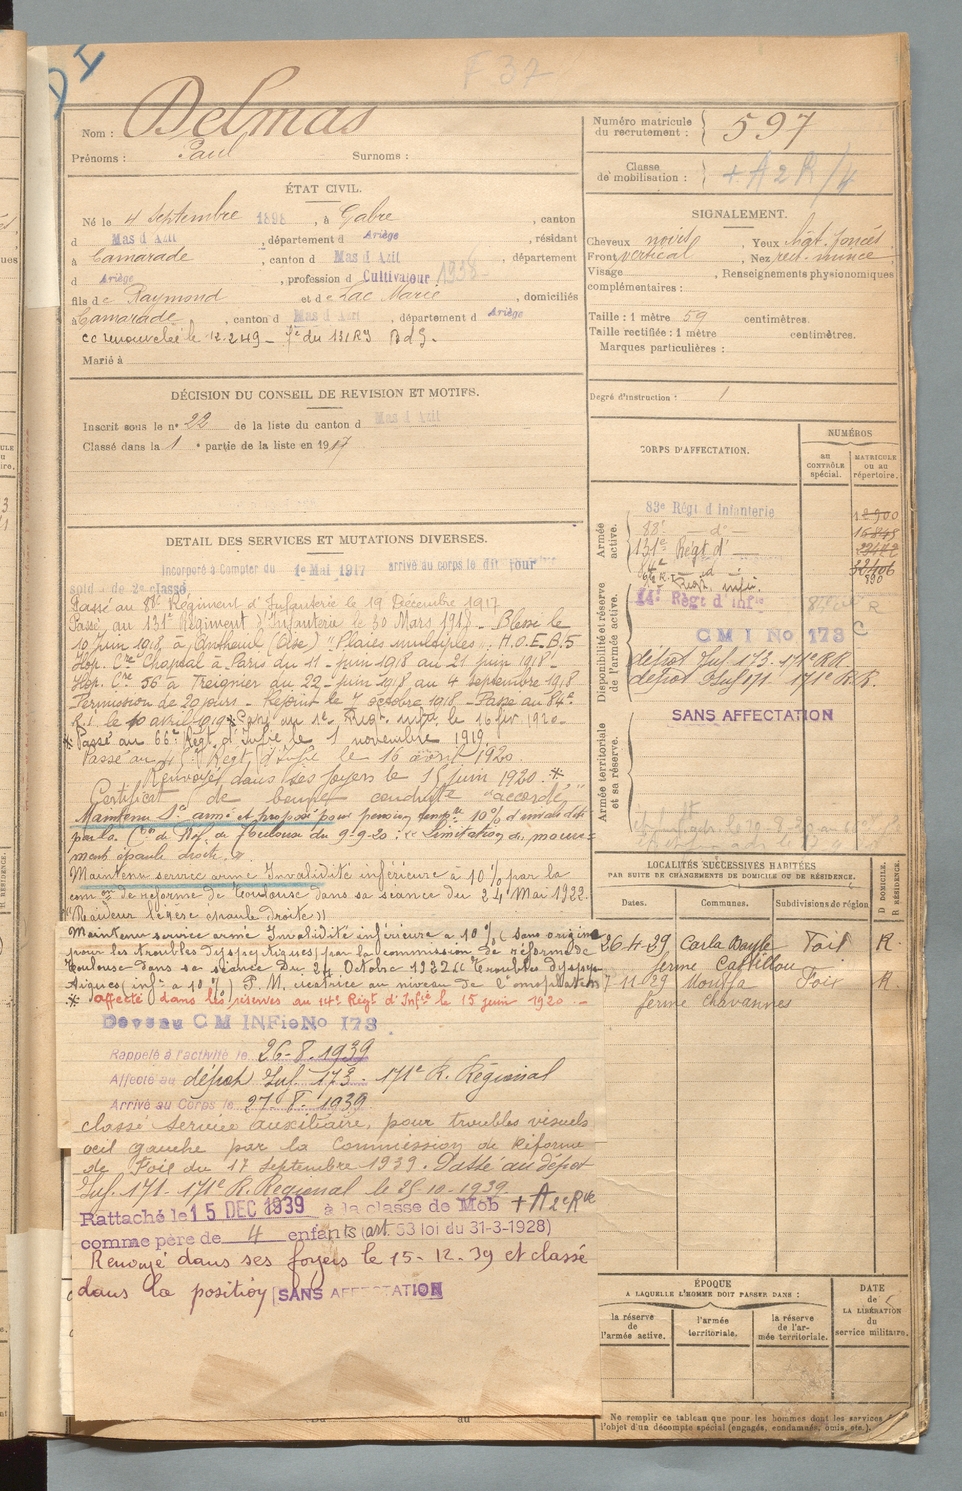 F 37
Nom : Delmas
Prénoms : Paul Surnoms :
Numéro matricule du recrutement : 597
Classe de mobilisation : + A 2 R/4
ÉTAT CIVIL.
Né le 4 Septembre 1898, à Gabre, canton
d Mas d'Azil, département d Ariège, résidant
à Camarade, canton d Mas d'Azil, département
d Ariège, profession d Cultivateur 1938
fils de Raymond et de Lac Marie, domiciliés
à Camarade, canton d Mas d'Azil, département d Ariège
cc renouvelée le 12.2.49 - du 131 RI
Marié à
SIGNALEMENT.
Cheveux noirs, Yeux foncés
Front vertical, Nez rect. mince
Visage, Renseignements physionomiques
complémentaires :
Taille : 1 mètre 59 centimètres.
Taille rectifiée : 1 mètre centimètres.
Marques particulières :
Degré d'instruction : 1
DÉCISION DU CONSEIL DE REVISION ET MOTIFS.
Inscrit sous le n° 22 de la liste du canton d Mas d'Azil
Classé dans la 1e partie de la liste en 1917
DÉTAIL DES SERVICES ET MUTATIONS DIVERSES.
Incorporé à Compter du 1e Mai 1917 arrivé au corps le dit jour
soldat de 2e classe
Passé au Régiment d'Infanterie le 19 Décembre 1917
Passé au 131e Régiment d'Infanterie le 30 Mars 1918 - Blessé le
10 Juin 1918 à Antheuil (Oise) "Plaies multiples" H.O.E.B.5
Hop. Cre Chaptal à Paris du 11 Juin 1918 au 21 Juin 1918
Hop. Cre 56 à Treignier du 22 Juin 1918 au 4 septembre 1918
Permission de 20 jours - Rejoint le octobre 1918 - Passé au 84e
R.I. le 10 avril 1919 * au Regt. le 16 fév 1920
* Passé au 66e Régt. d'Infie le 1 novembre 1919
Passé au Regt. d'Infie le 16 avril 1920
Renvoyé dans ses foyers le 15 Juin 1920. *
Certificat de bonne conduite "accordé"
Maintenu Sce armé et proposé pour pension 10% d'invalidité
par la Con de Réf. de Toulouse du 9-9-20 : "Limitation des mouve-
ment épaule droite"
Maintenu service armé Invalidité inférieure à 10% par la
com on de réforme de Toulouse dans sa séance du 24 Mai 1922.
"Raideur légère épaule droite"
Maintenu service armé Invalidité inférieure à 10% (sans origine
pour les troubles dyspeptiques) par la commission de réforme de
Toulouse dans sa séance du 24 Octobre 1932 "Troubles dyspep-
tiques (inf. à 10%) P.M. cicatrice au niveau de l'omoplate
* affecté dans les réserves au 14e Régt d'Infie le 15 juin 1920
Devenu CM INFie No 173
Rappelé à l'activité le 26-8-1939
Affecté au dépôt Inf. 173 - 171e R. Régional
Arrivé au Corps le 27-8-1939
classé service auxiliaire, pour troubles visuels
œil gauche par la Commission de Réforme
de Foix du 17 septembre 1939. Passé au dépôt
Inf. 171 - 171e R. Régional le 25-10-1939
Rattaché le 15 DEC 1939 à la classe de Mob + A 2e Rve
comme père de 4 enfants (art. 53 loi du 31-3-1928)
Renvoyé dans ses foyers le 15-12-39 et classé
dans la position SANS AFFECTATION
CORPS D'AFFECTATION.
NUMÉROS
au CONTRÔLE spécial.
MATRICULE ou au répertoire.
Armée active.
83e Régt d'Infanterie
88e - do -
131e Régt d'
Régt. infie.
Disponibilité et réserve de l'armée active.
14e Régt d'Infie R
C M I No 173 C
dépôt Inf. 173. 171e R.R.
dépôt Inf 171 171e R.R.
SANS AFFECTATION
Armée territoriale et sa réserve.
LOCALITÉS SUCCESSIVES HABITÉES
PAR SUITE DE CHANGEMENTS DE DOMICILE OU DE RÉSIDENCE.
Dates. Communes. Subdivisions de région. D DOMICILE. R RÉSIDENCE.
26.4.39 Carla Bayle Foix R.
ferme Castillou
7-11-39 Foix R.
ferme Chavannes
ÉPOQUE
A LAQUELLE L'HOMME DOIT PASSER DANS :
la réserve de l'armée active.
l'armée territoriale.
la réserve de l'armée territoriale.
DATE de LA LIBÉRATION du service militaire.
Ne remplir ce tableau que pour les hommes dont les services
l'objet d'un décompte spécial (engagés, condamnés, omis, etc.).